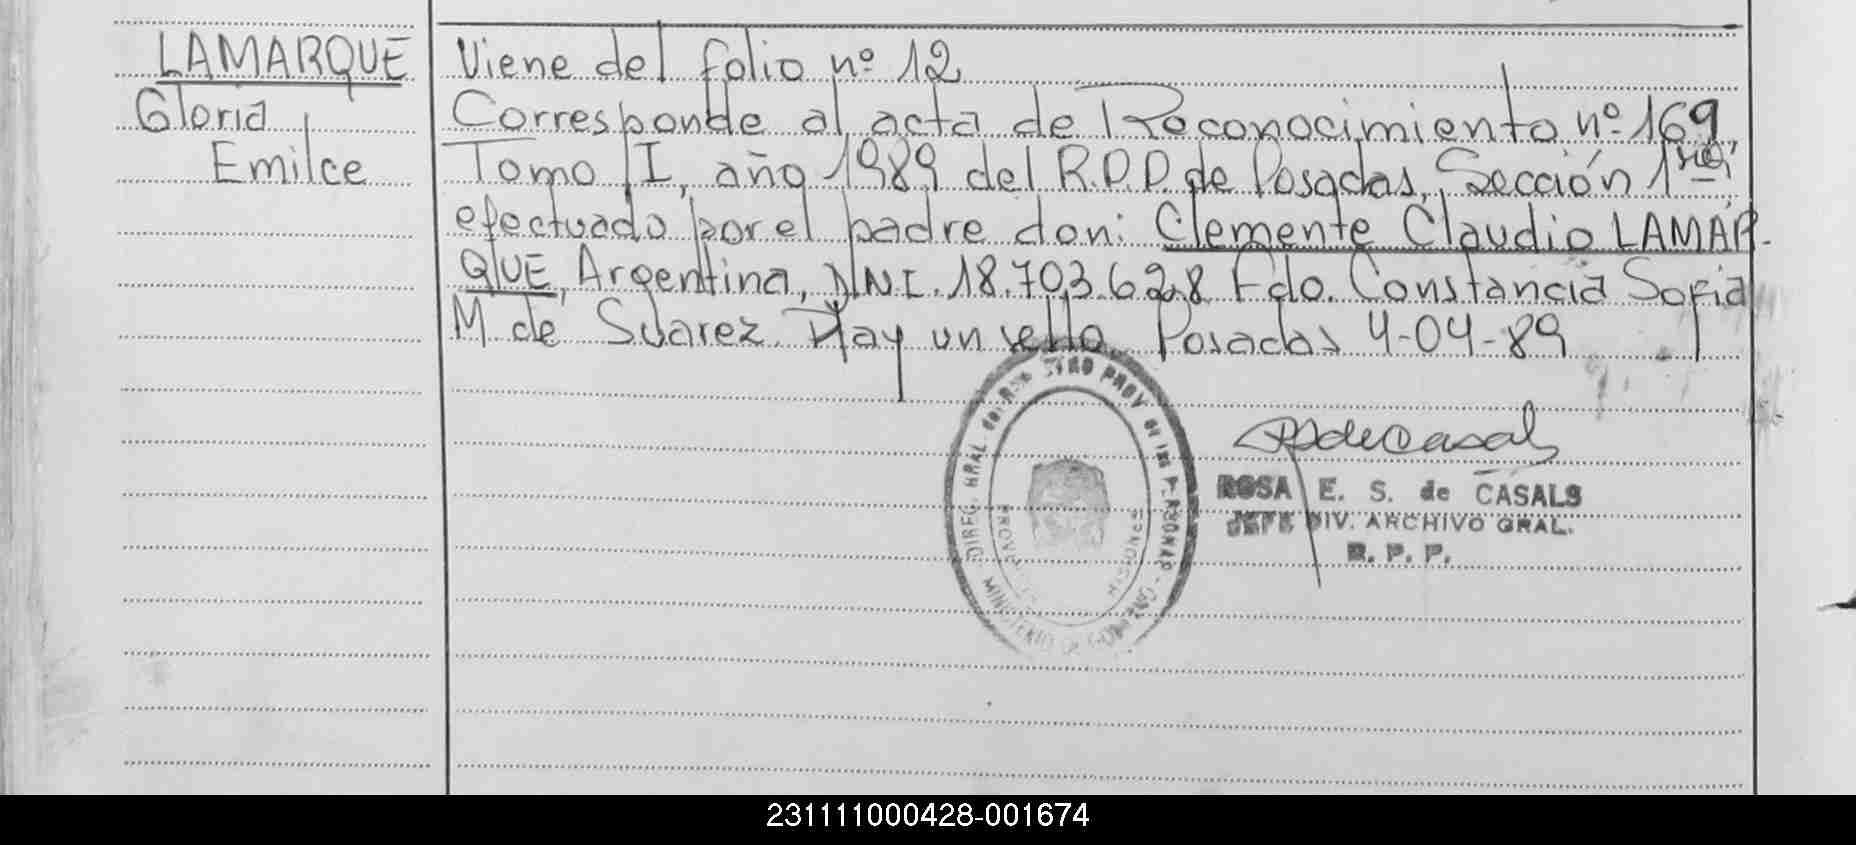 LAMARQUE
Gloria
Emilce
Viene del folio nº 12
Corresponde al acta de Reconocimiento nº 169,
Tomo I, año 1989 del R.P.P. de Posadas, Sección 1ra,
efectuado por el padre don: Clemente Claudio LAMAR-
QUE, Argentina, DNI. 18.703.628 Fdo. Constancia Sofia
M. de Suarez. Hay un sello. Posadas 4-04-89
PROV DE LAS PERSONAS
DIREC. GRAL.
MINISTERIO DE GOBIERNO
PROVINCIA
MISIONES
ROSA E. S. de CASALS
JEFE DIV. ARCHIVO GRAL.
R. P. P.
231111000428-001674